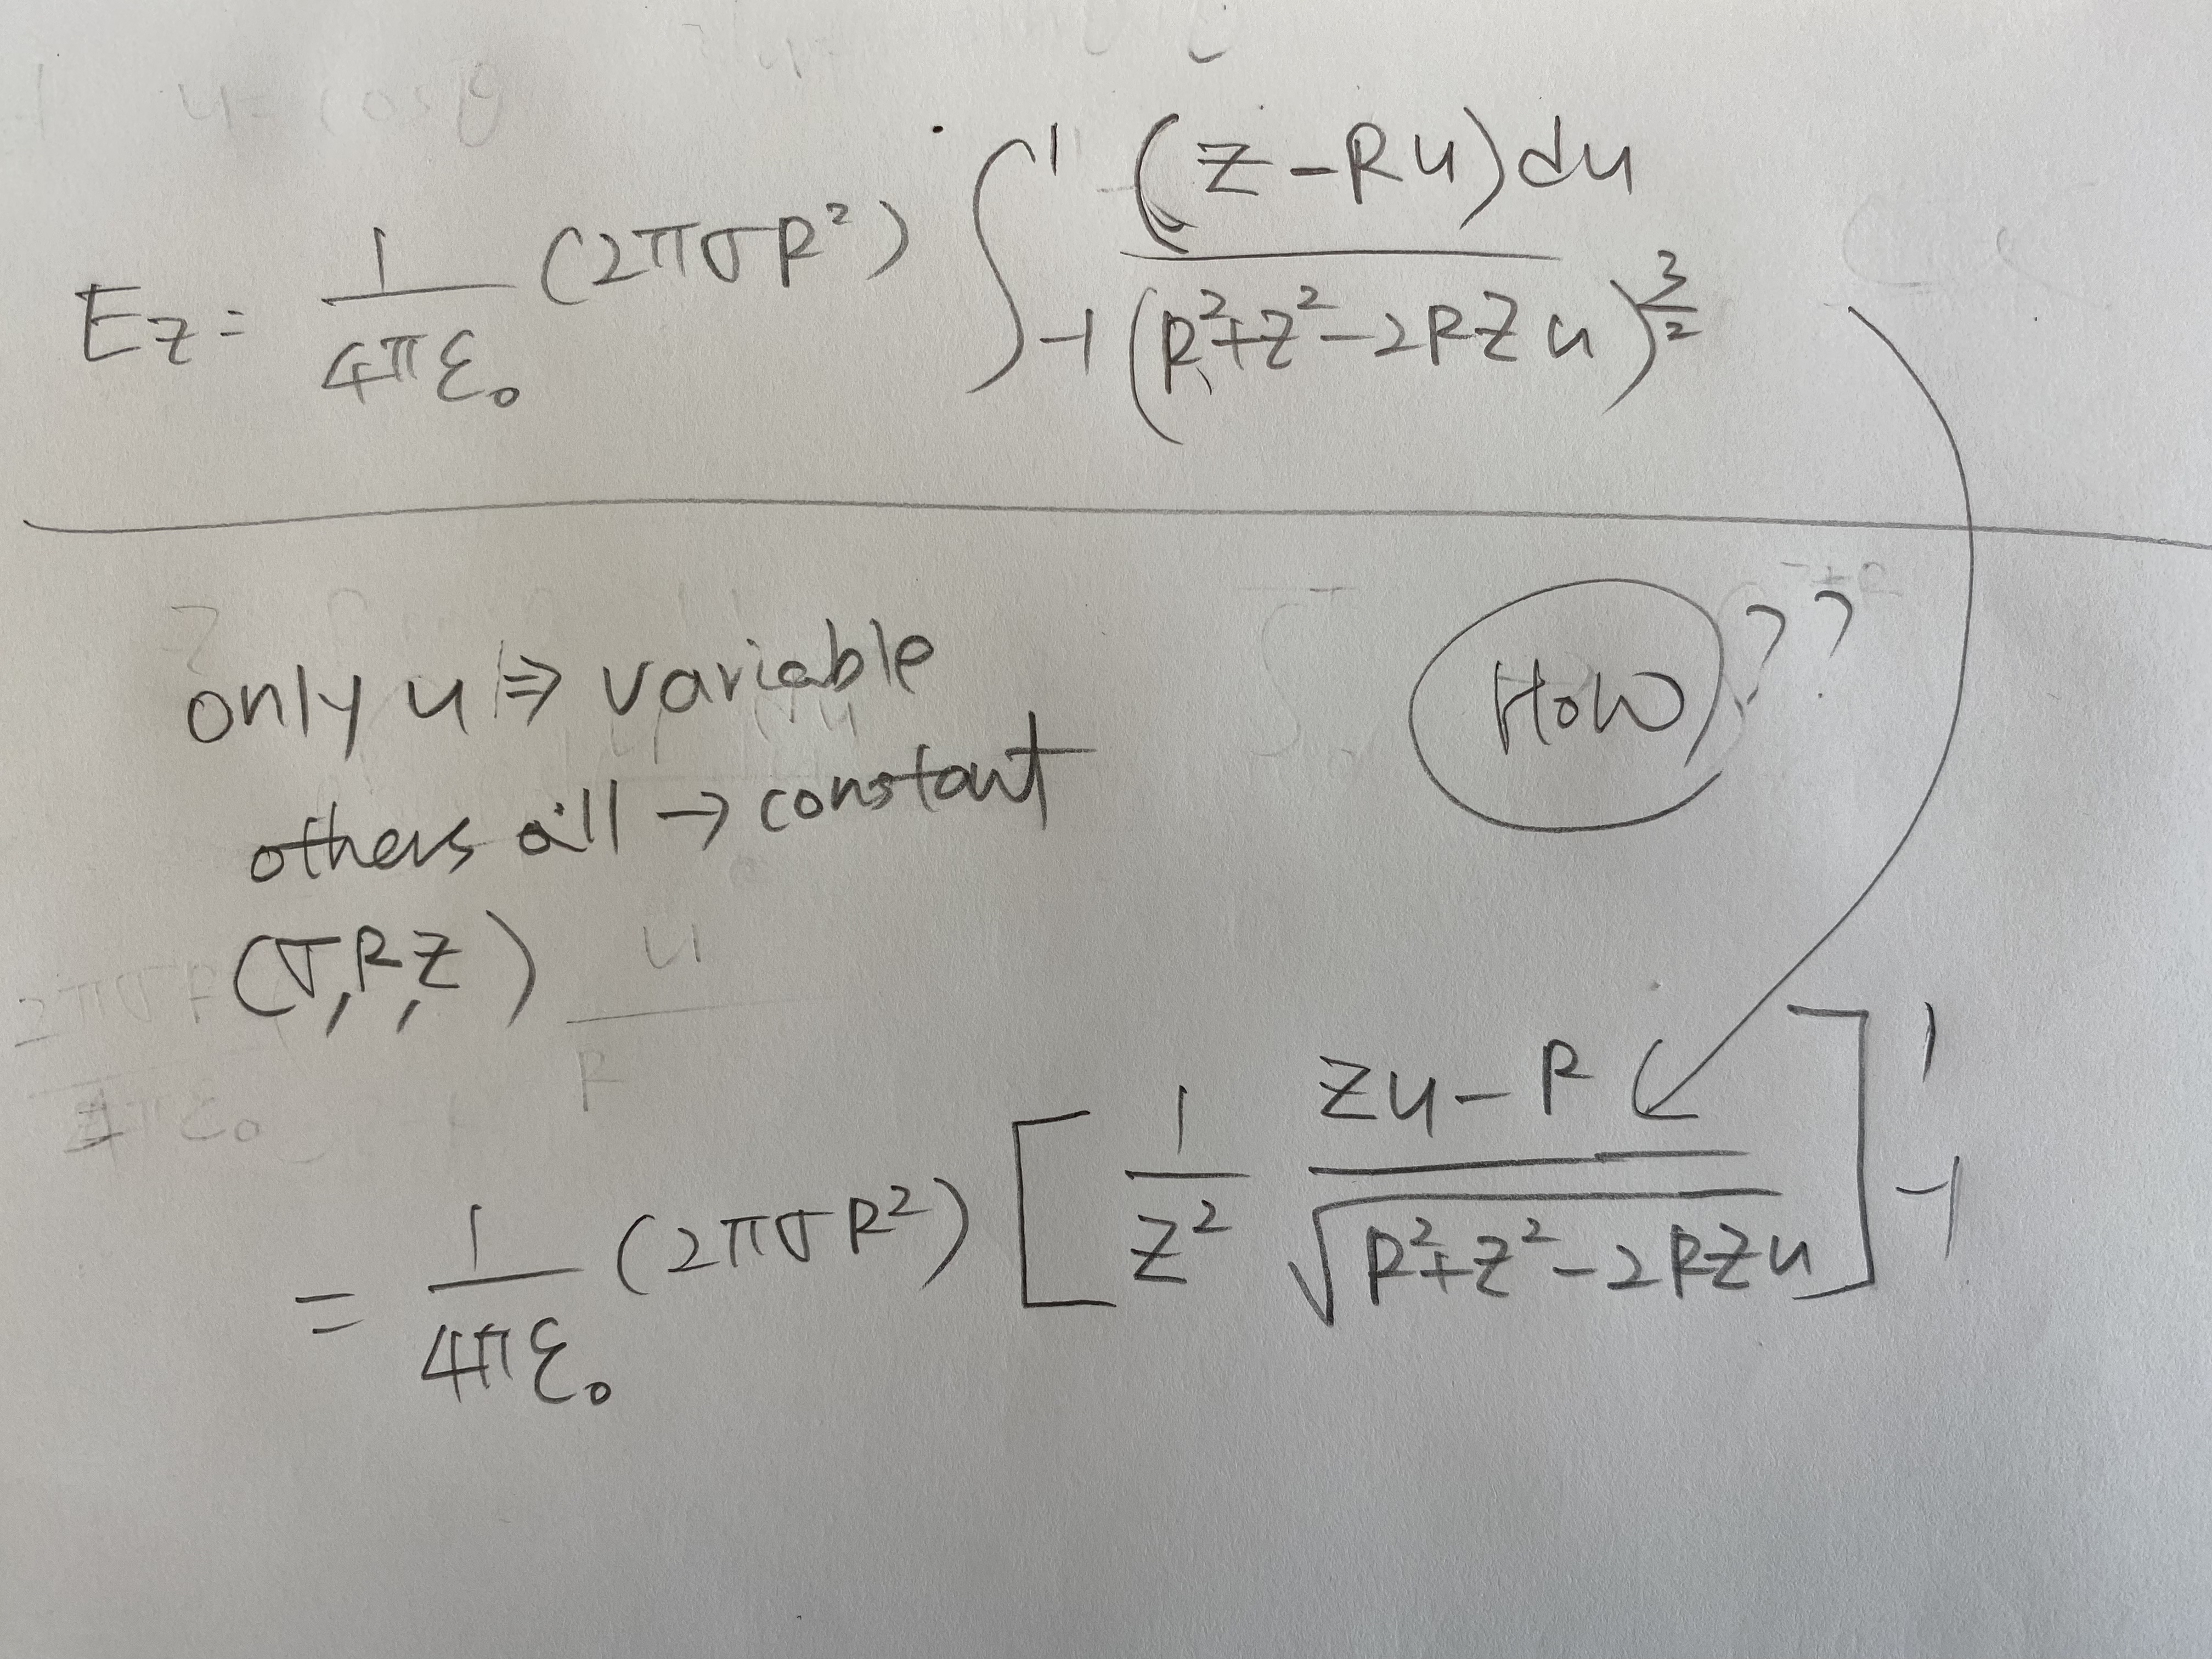 E_z = 1/(4πε₀) (2πσR²) ∫_{-1}^{1} (z-Ru)du / (R²+z²-2Rzu)^{3/2}
only u ⇒ variable
HOW ??
others all → constant
(σ,R,z)
= 1/(4πε₀) (2πσR²) [ 1/z² (zu-R)/√(R²+z²-2Rzu) ]_{-1}^{1}